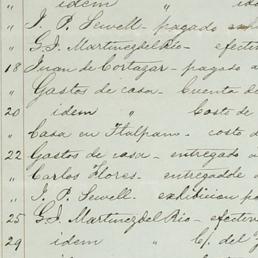 " idem " id
" J. P. Sewell - pagado
" G. I. Martinez del Rio - efecti
18 Juan de Cortazar - pagado a
" Gastos de casa - Cuenta de
20 idem " Costo de
" Casa en Tlalpam - costo d
22 Gastos de casa - entregado a
" Carlos Flores - entregadole a
" J. P. Sewell - exhibicion pa
25 G. I. Martinez del Rio - efectivo
29 idem " C/. del